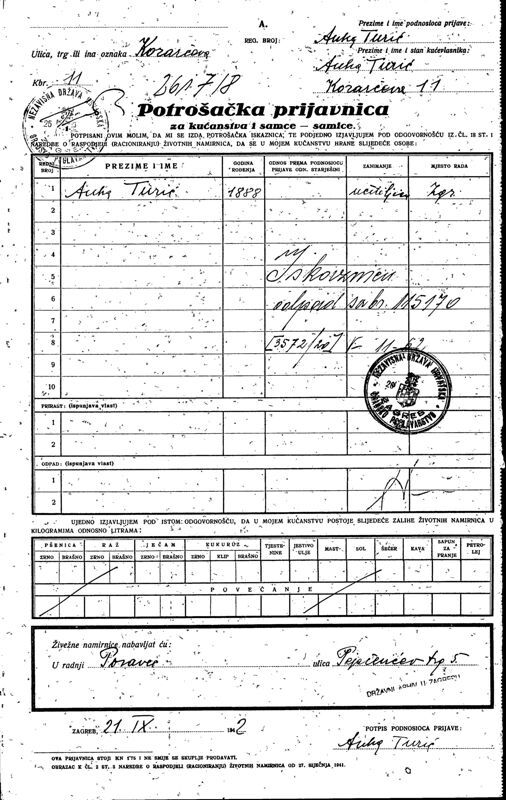 A.
REG. BROJ:
Prezime i ime podnosioca prijave:
Anka Turić
Ulica, trg ili ina oznaka Kozarčeva
Prezime i ime i stan kućevlasnika:
Anka Turić
Kbr. 11
Kozarčeva 11
261.718
Potrošačka prijavnica
za kućanstva i samce – samice.
POTPISANI OVIM MOLIM, DA MI SE IZDA POTROŠAČKA ISKAZNICA, TE PODJEDNO IZJAVLJUJEM POD ODGOVORNOŠĆU IZ ČL. 18 ST. 1
NAREDBE O RASPODJELI (RACIONIRANJU) ŽIVOTNIH NAMIRNICA, DA SE U MOJEM KUĆANSTVU HRANE SLIJEDEĆE OSOBE:
REDNI BROJ PREZIME I IME GODINA ROĐENJA ODNOS PREMA PODNOSIOCU PRIJAVE ODN. STARJEŠINI ZANIMANJE MJESTO RADA
1 Anka Turić 1888 učiteljica Zgr.
2
3
4
5
6 odpad sa br. 115170
7
8 [3572/20]
9
10
NEZAVISNA DRŽAVA HRVATSKA
ZAGREB
GRADSKO POGLAVARSTVO
PRIRAST: (ispunjava vlast)
1
2
ODPAD: (ispunjava vlast)
1
2
UJEDNO IZJAVLJUJEM POD ISTOM ODGOVORNOŠĆU, DA U MOJEM KUĆANSTVU POSTOJE SLIJEDEĆE ZALIHE ŽIVOTNIH NAMIRNICA U
KILOGRAMIMA ODNOSNO LITRAMA:
PŠENICA RAŽ JEČAM KUKURUZ TJESTENINE JESTIVO ULJE MAST SOL ŠEĆER KAVA SAPUN ZA PRANJE PETROLEJ
ZRNO BRAŠNO ZRNO BRAŠNO ZRNO BRAŠNO ZRNO KLIP BRAŠNO
POVEĆANJE
Živežne namirnice nabavljat ću:
U radnji Poravec ulica Pejačevićev trg 5.
DRŽAVNI ARHIV U ZAGREBU
ZAGREB, 21. IX. 1942
POTPIS PODNOSIOCA PRIJAVE:
Anka Turić
OVA PRIJAVNICA STOJI KN 1.75 I NE SMIJE SE SKUPLJE PRODAVATI.
OBRAZAC K ČL. 2 ST. 2 NAREDBE O RASPODJELI (RACIONIRANJU) ŽIVOTNIH NAMIRNICA OD 27. SIJEČNJA 1941.